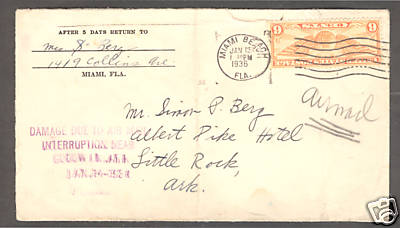 AFTER 5 DAYS RETURN TO
Mrs S. Berg
1419 Collins Ave
MIAMI, FLA.
MIAMI BEACH
JAN 13
PM
1936
FLA.
9 9
Airmail
Mr. Simon P. Berg
Albert Pike Hotel
Little Rock,
Ark.
DAMAGE DUE TO AIR
INTERRUPTION NEAR
ebY